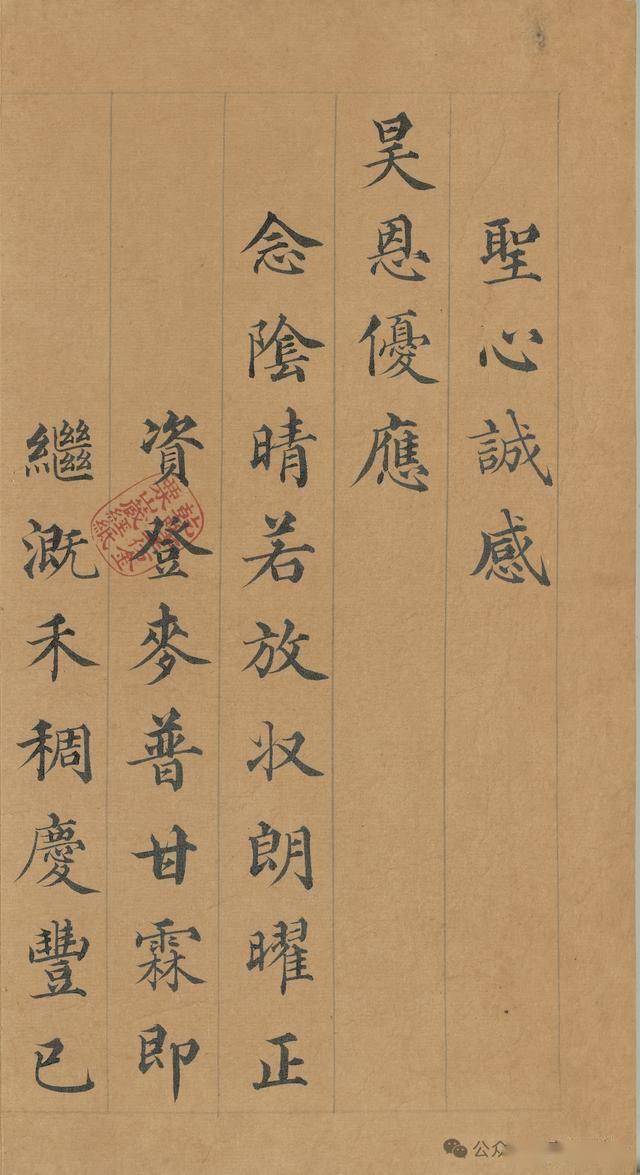 聖心誠感
昊恩優應
念陰晴若放収朗曜正
資登麥普甘霖即
繼溉禾稠慶豐已
公众